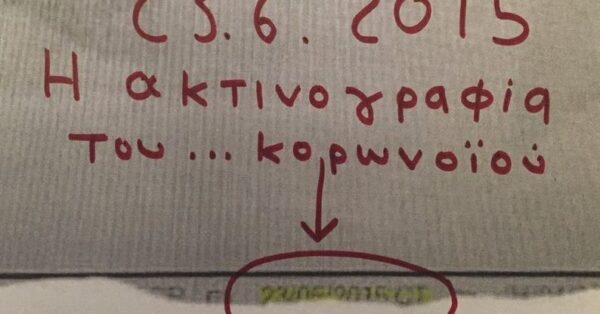 23.6.2015
Η ακτινογραφία
του... κορωνοϊού